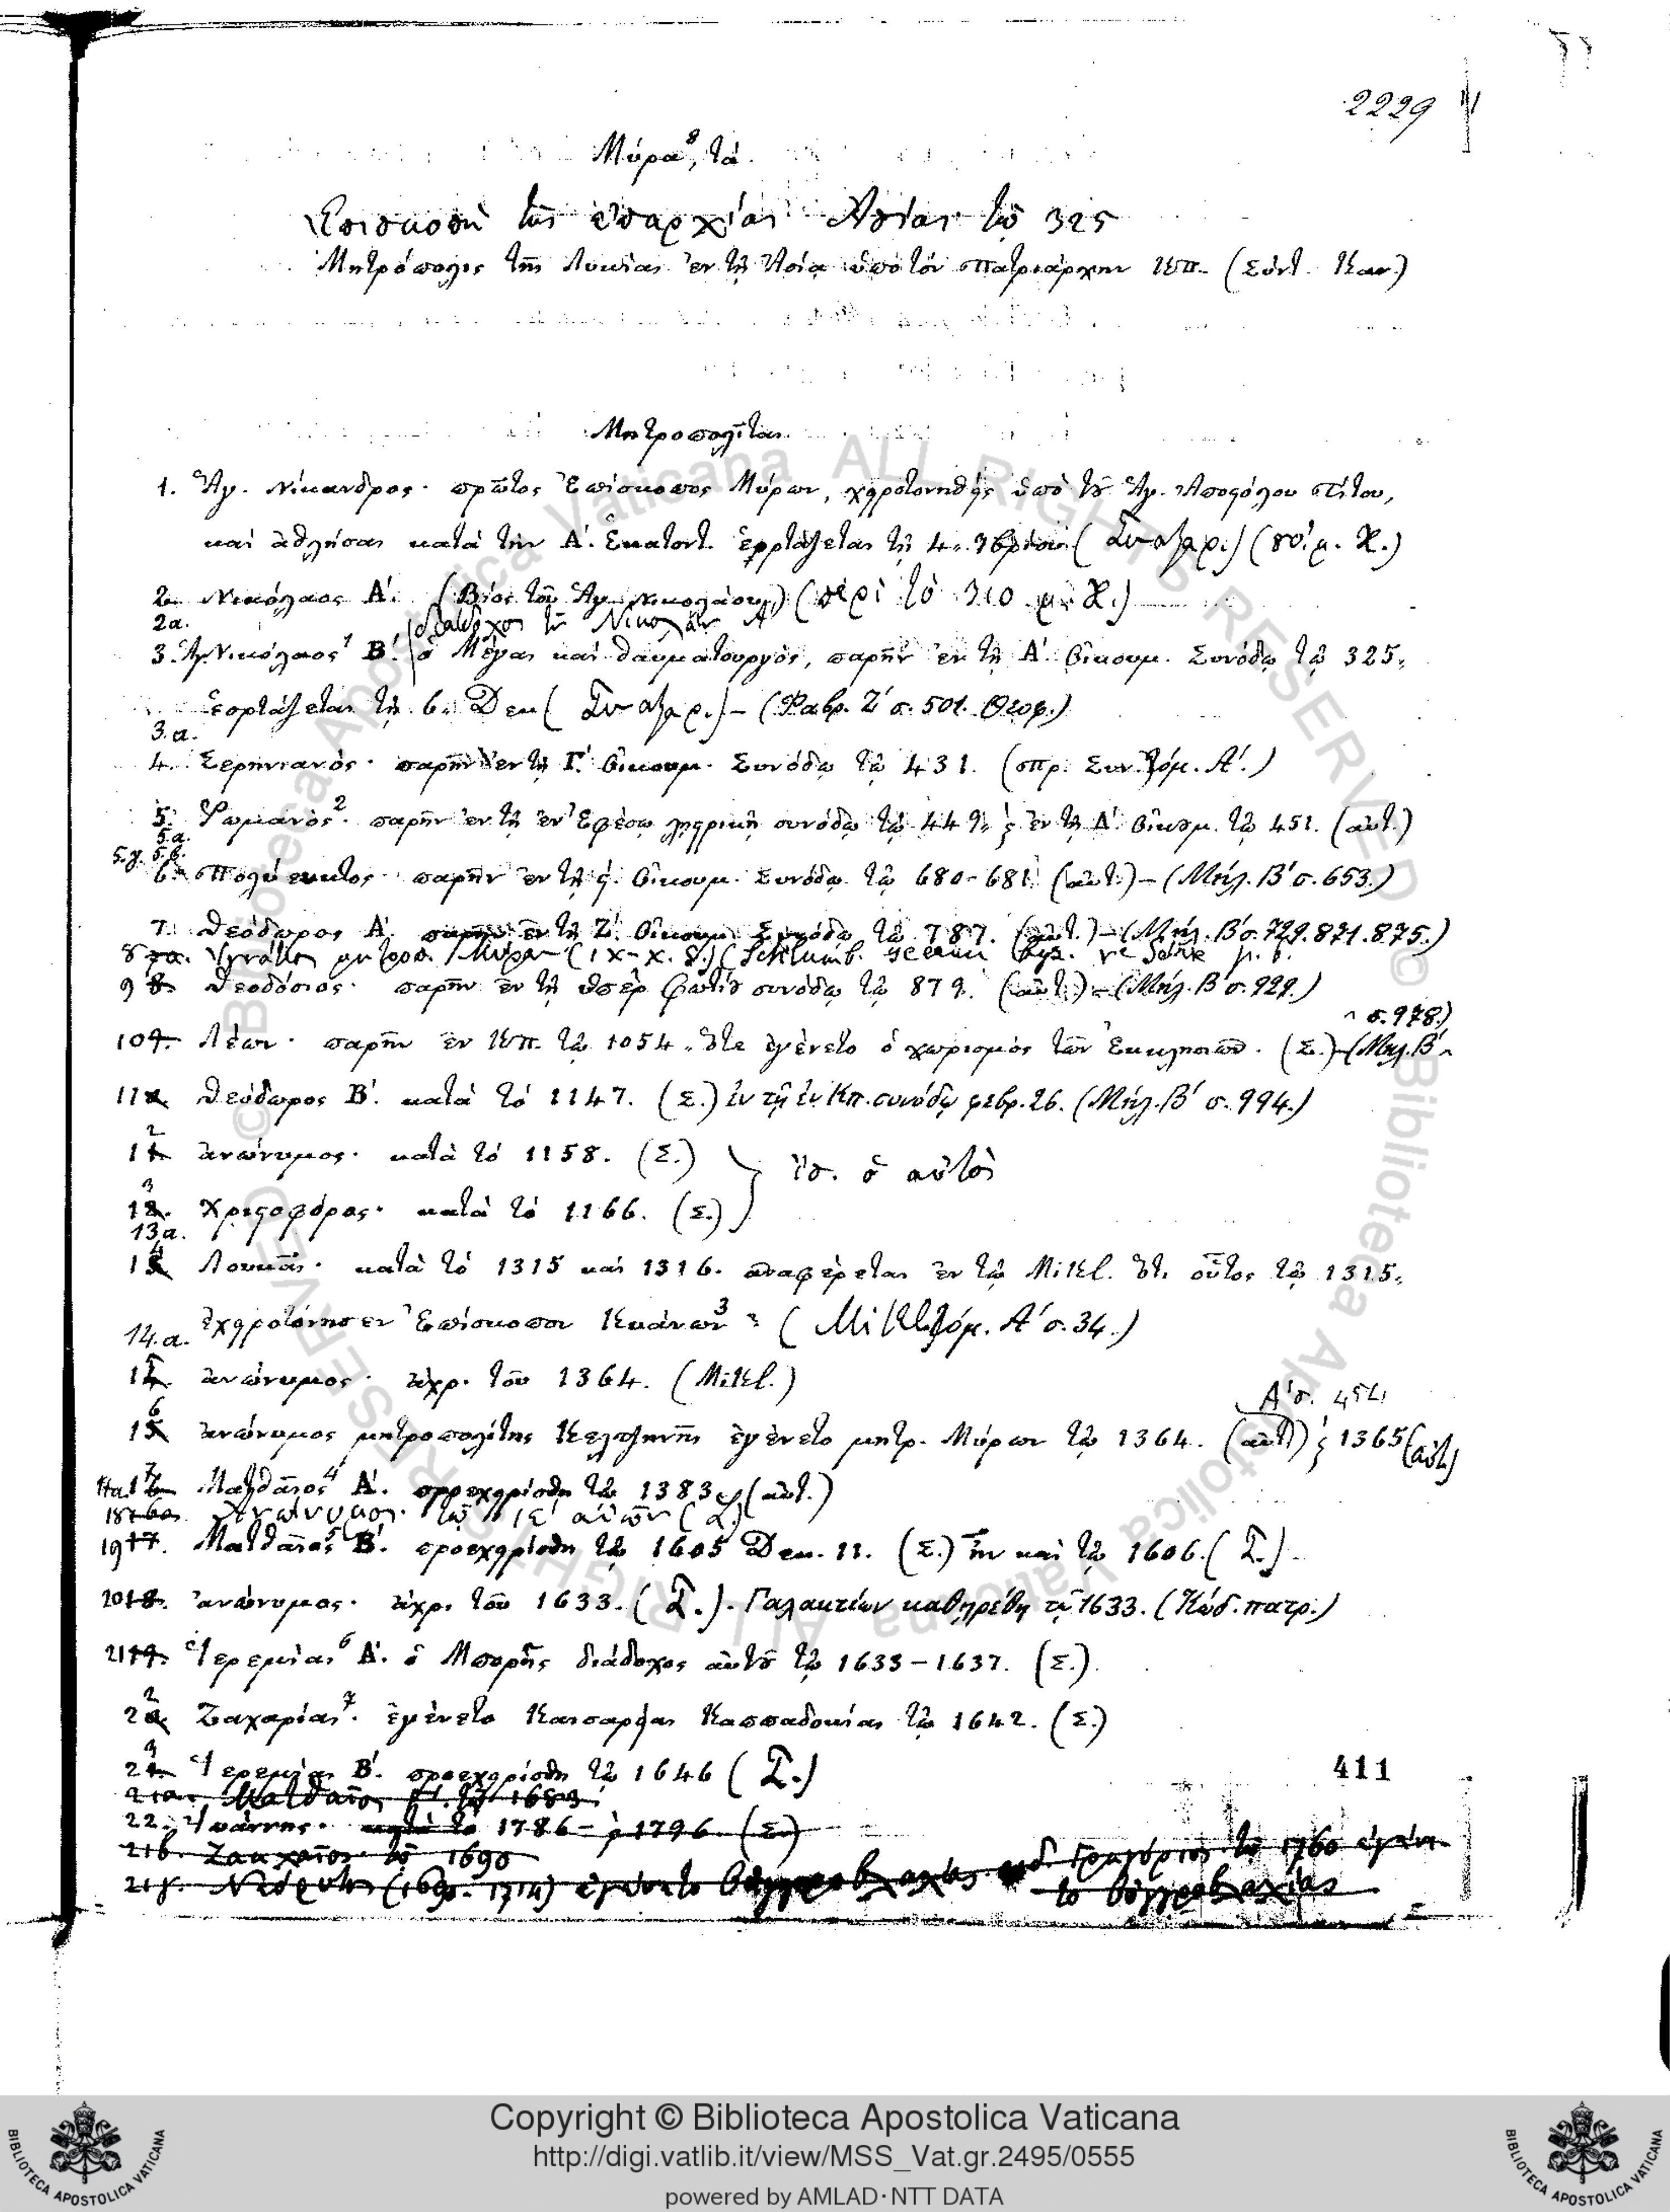 2229
Μύρα⁸, τά.
Ἐπισκοπὴ τῆς ἐπαρχίας Ἀσίας τῷ 325
Μητρόπολις τῆς Λυκίας ἐν τῇ Ἀσίᾳ ὑπὸ τὸν πατριάρχην Κπ. (Σύντ. Καν.)
Μητροπολῖται.
1. Ἅγ. Νίκανδρος· πρῶτος Ἐπίσκοπος Μύρων, χειροτονηθεὶς ὑπὸ τοῦ Ἁγ. Ἀποστόλου Τίτου,
καὶ ἀθλήσας κατὰ τὴν Α΄. Ἑκατοντ. ἑορτάζεται τῇ 4. (Συναξαρ.) (μ. Χ.)
2. Νικόλαος Α΄. (Βίος τοῦ Ἁγ. Νικολάου) (περὶ τὸ 310 μ. Χ.)
2α. διάδοχος τοῦ Νικολάου Α΄
3. Ἅγ. Νικόλαος¹ Β΄. ὁ Μέγας καὶ θαυματουργός, παρῆν ἐν τῇ Α΄. Οἰκουμ. Συνόδῳ τῷ 325,
ἑορτάζεται τῇ 6. Δεκ (Συναξαρ.) – (Φαβρ. Ζ΄ σ. 501. Θεοφ.)
3.α.
4. Σερηνιανὸς· παρῆν ἐν τῇ Γ΄. Οἰκουμ. Συνόδῳ τῷ 431. (πρ. Συν. τόμ. Α΄.)
5. Ῥωμανὸς². παρῆν ἐν τῇ ἐν Ἐφέσῳ λῃστρικῇ συνόδῳ τῷ 449, ϗ ἐν τῇ Δ΄. Οἰκουμ. τῷ 451. (αὐτ.)
5.α.
5.γ. 5.β.
6. Πολύευκτος· παρῆν ἐν τῇ ϛ΄. Οἰκουμ. Συνόδῳ τῷ 680-681 (αὐτ.) – (Μήλ. Β΄ σ. 653.)
7. Θεόδωρος Α΄. παρῆν ἐν τῇ Ζ΄. Οἰκουμ. Συνόδῳ τῷ 787. (αὐτ.) – (Μήλ. Β΄ σ. 729. 871. 875.)
8 7α. Ἰγνάτιος μητροπ. Μύρων (IX-X. S.) (Schlumb.
9 8. Θεοδόσιος· παρῆν ἐν τῇ ὑπὲρ Φωτίου συνόδῳ τῷ 879. (αὐτ.) – (Μήλ. Β΄ σ. 929.)
^ σ. 978.)
10 9. Λέων· παρῆν ἐν Κπ. τῷ 1054, ὅτε ἐγένετο ὁ χωρισμὸς τῶν Ἐκκλησιῶν. (Σ.) – (Μήλ. Β΄ ^
11. Θεόδωρος Β΄. κατὰ τὸ 1147. (Σ.) ἐν τῇ ἐν Κπ. συνόδῳ φεβρ. 26. (Μήλ. Β΄ σ. 994.)
12 ἀνώνυμος· κατὰ τὸ 1158. (Σ.) } ἴσ. ὁ αὐτὸς
13 Χριστοφόρος· κατὰ τὸ 1166. (Σ.)
13α.
14 Λουκᾶς· κατὰ τὸ 1315 καὶ 1316. ἀναφέρεται ἐν τῷ Mikl. ὅτι οὗτος τῷ 1315,
ἐχειροτόνησεν Ἐπίσκοπον Κυάνων³ (Mikl. τόμ. Α΄ σ. 34.)
14.α.
15 ἀνώνυμος· ἄχρι τοῦ 1364. (Mikl.)
Α΄ σ. 454
16 ἀνώνυμος μητροπολίτης Κελτζηνῆς ἐγένετο μητρ. Μύρων τῷ 1364. (αὐτ) ϗ 1365 (αὐτ)
17 Ματθαῖος⁴ Α΄. προεχειρίσθη τῷ 1383 (αὐτ.)
18 Ἀνώνυμος. τῷ ΙΕ΄ αἰῶνι (Σ.)
19 17. Ματθαῖος⁵ Β΄. προεχειρίσθη τῷ 1605 Δεκ. 11. (Σ.) ἦν καὶ τῷ 1606. (Σ.).
20 18. ἀνώνυμος· ἄχρι τοῦ 1633. (Σ.). Γαλακτίων καθῃρέθη τῷ 1633. (Κώδ. πατρ.)
21 19. Ἱερεμίας⁶ Α΄. ὁ Μπορῆς διάδοχος αὐτοῦ τῷ 1633-1637. (Σ.).
22 Ζαχαρίας⁷. ἐγένετο Καισαρείας Καππαδοκίας τῷ 1642. (Σ.)
23 Ἱερεμίας Β΄. προεχειρίσθη τῷ 1646 (Σ.)
411
21α. Ματθαῖος Γ΄. τῷ 1683.
22. Ἰωάννης· κατὰ τὸ 1786 – 1796 (Σ)
21β. Ζακχαῖος τῷ 1690
21δ. Γρηγόριος τῷ 1760 ἐγένε
το Οὑγγροβλαχίας
21γ. Νεόφυτος (1690. 1714) ἐγένετο Οὑγγροβλαχίας
Copyright © Biblioteca Apostolica Vaticana
http://digi.vatlib.it/view/MSS_Vat.gr.2495/0555
powered by AMLAD·NTT DATA
BIBLIOTECA APOSTOLICA VATICANA
BIBLIOTECA APOSTOLICA VATICANA
© Biblioteca Apostolica Vaticana ALL RIGHTS RESERVED © Biblioteca Apostolica Vaticana ALL RIGHTS RESERVED